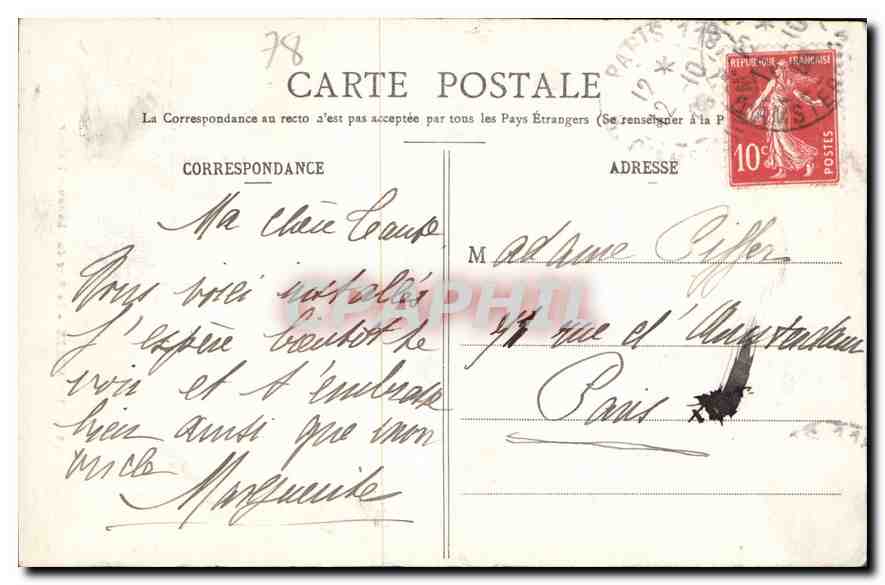 78
CARTE POSTALE
La Correspondance au recto n'est pas acceptée par tous les Pays Étrangers (Se renseigner à la P
CORRESPONDANCE
Ma chère tante
Nous voici installés
J'espère bientôt te
voir et t'embrasse
bien ainsi que mon
oncle
Marguerite
ADRESSE
Madame Piffer
rue d'Amsterdam
Paris
REPUBLIQUE FRANÇAISE
10c
POSTES
PARIS 118
CPAPHIL